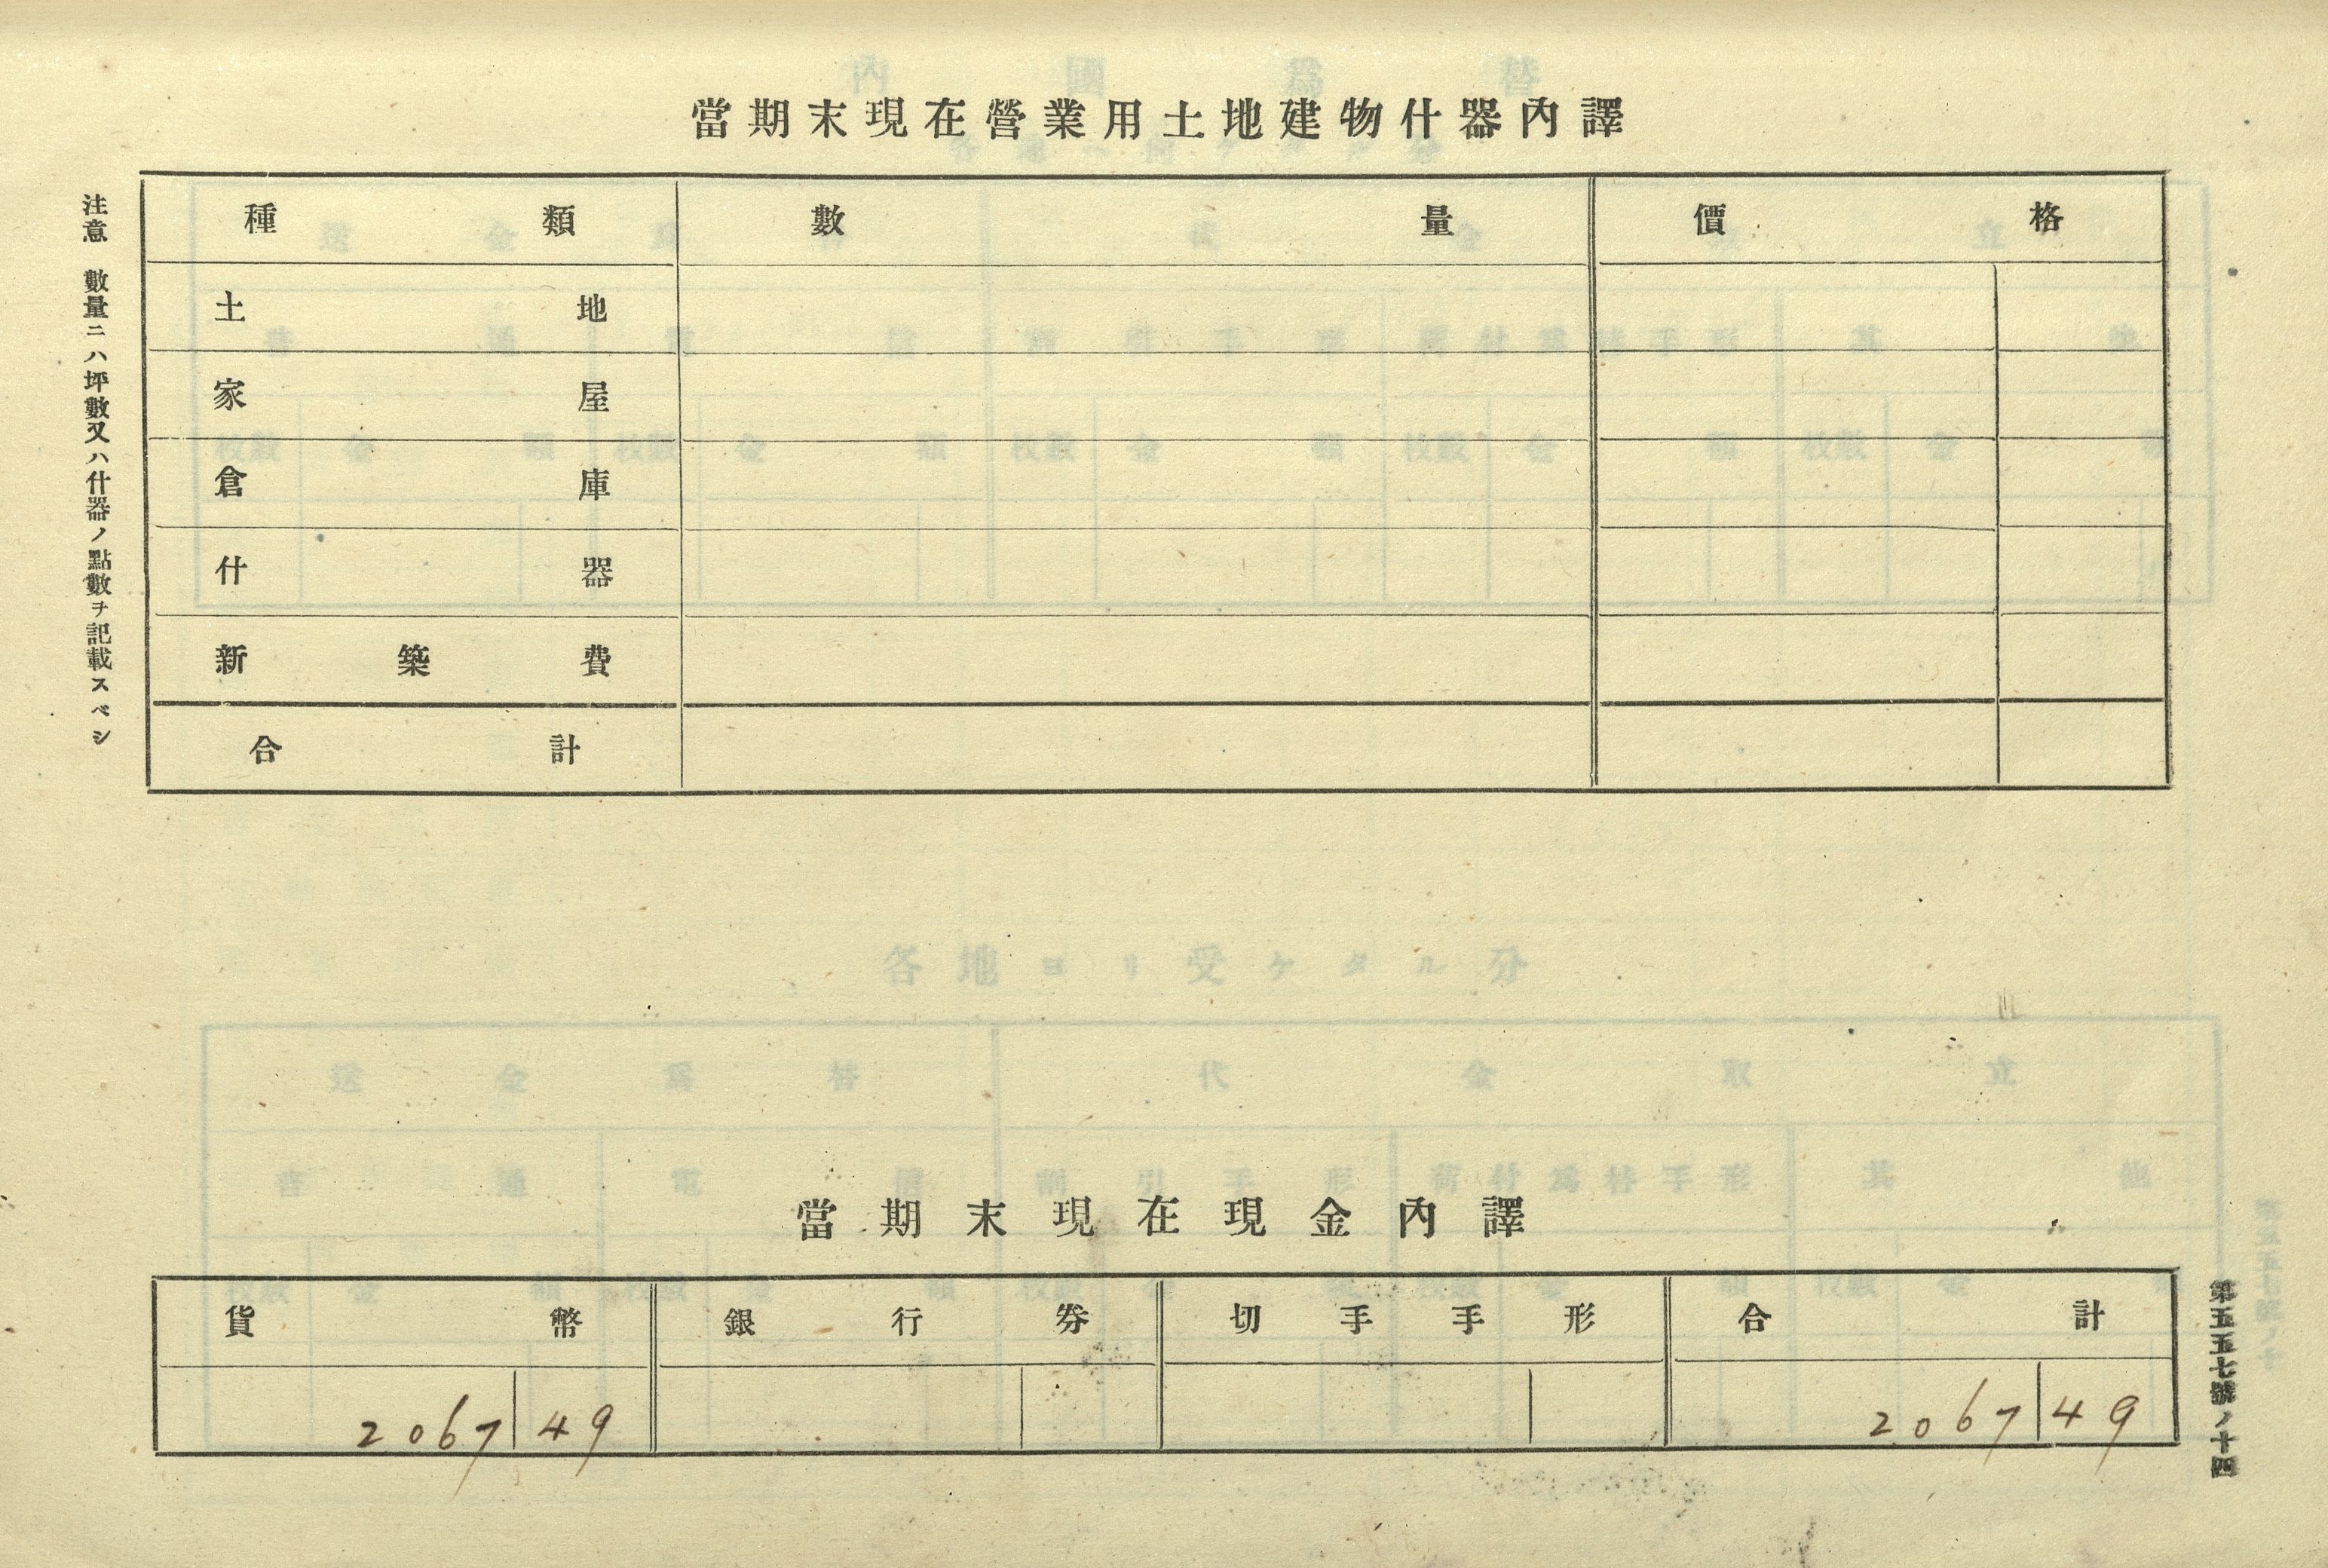 當期末現在營業用土地建物什器內譯
種類 數量 價格
土地
家屋
倉庫
什器
新築費
合計
注意 數量ニハ坪數又ハ什器ノ點數ヲ記載スベシ
各地ヨリ受ケタル分
當期末現在現金內譯
貨幣 銀行券 切手手形 合計
2067 49 2067 49
第五五七號ノ十四